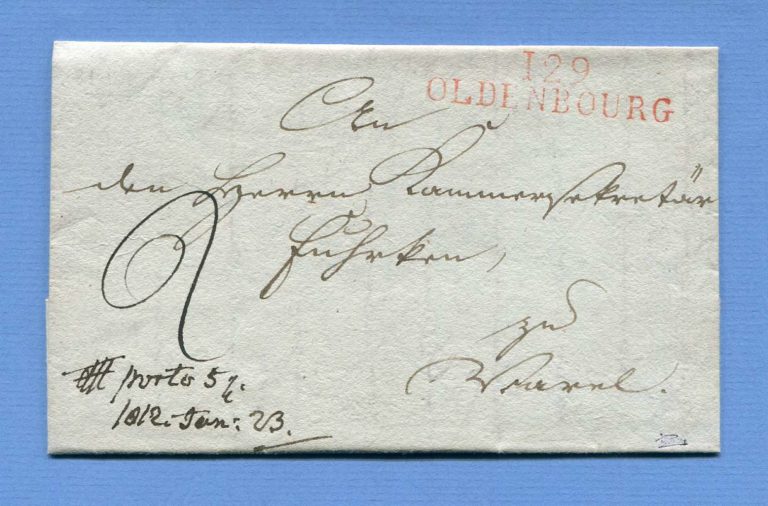 129
OLDENBOURG
An
den Herrn Kammersekretär
Fuhrken,
zu
Varel.
porto 5
1812. Jan: 23.